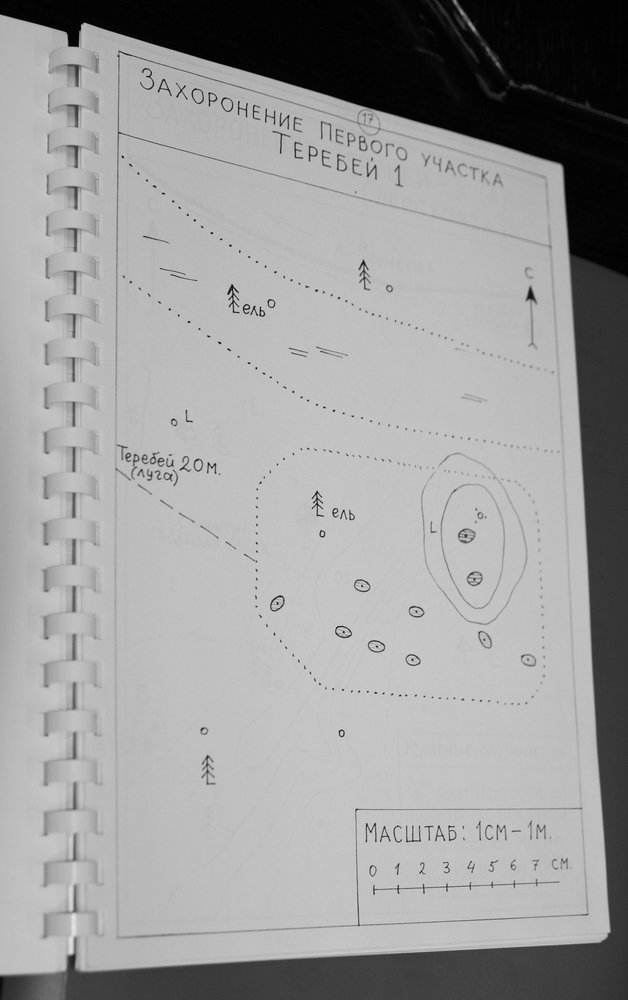 17
Захоронение Первого участка
Теребей 1
С
ель
L
Теребей 20 м.
(луга)
ель
L
Масштаб: 1см – 1м.
0 1 2 3 4 5 6 7 см.